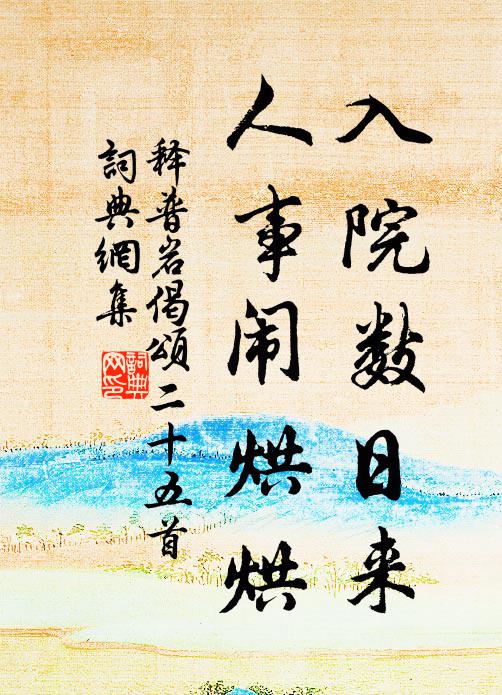 入院数日来
人事闹烘烘
释普岩偈頌二十五首
詞典網集
詞典
网印